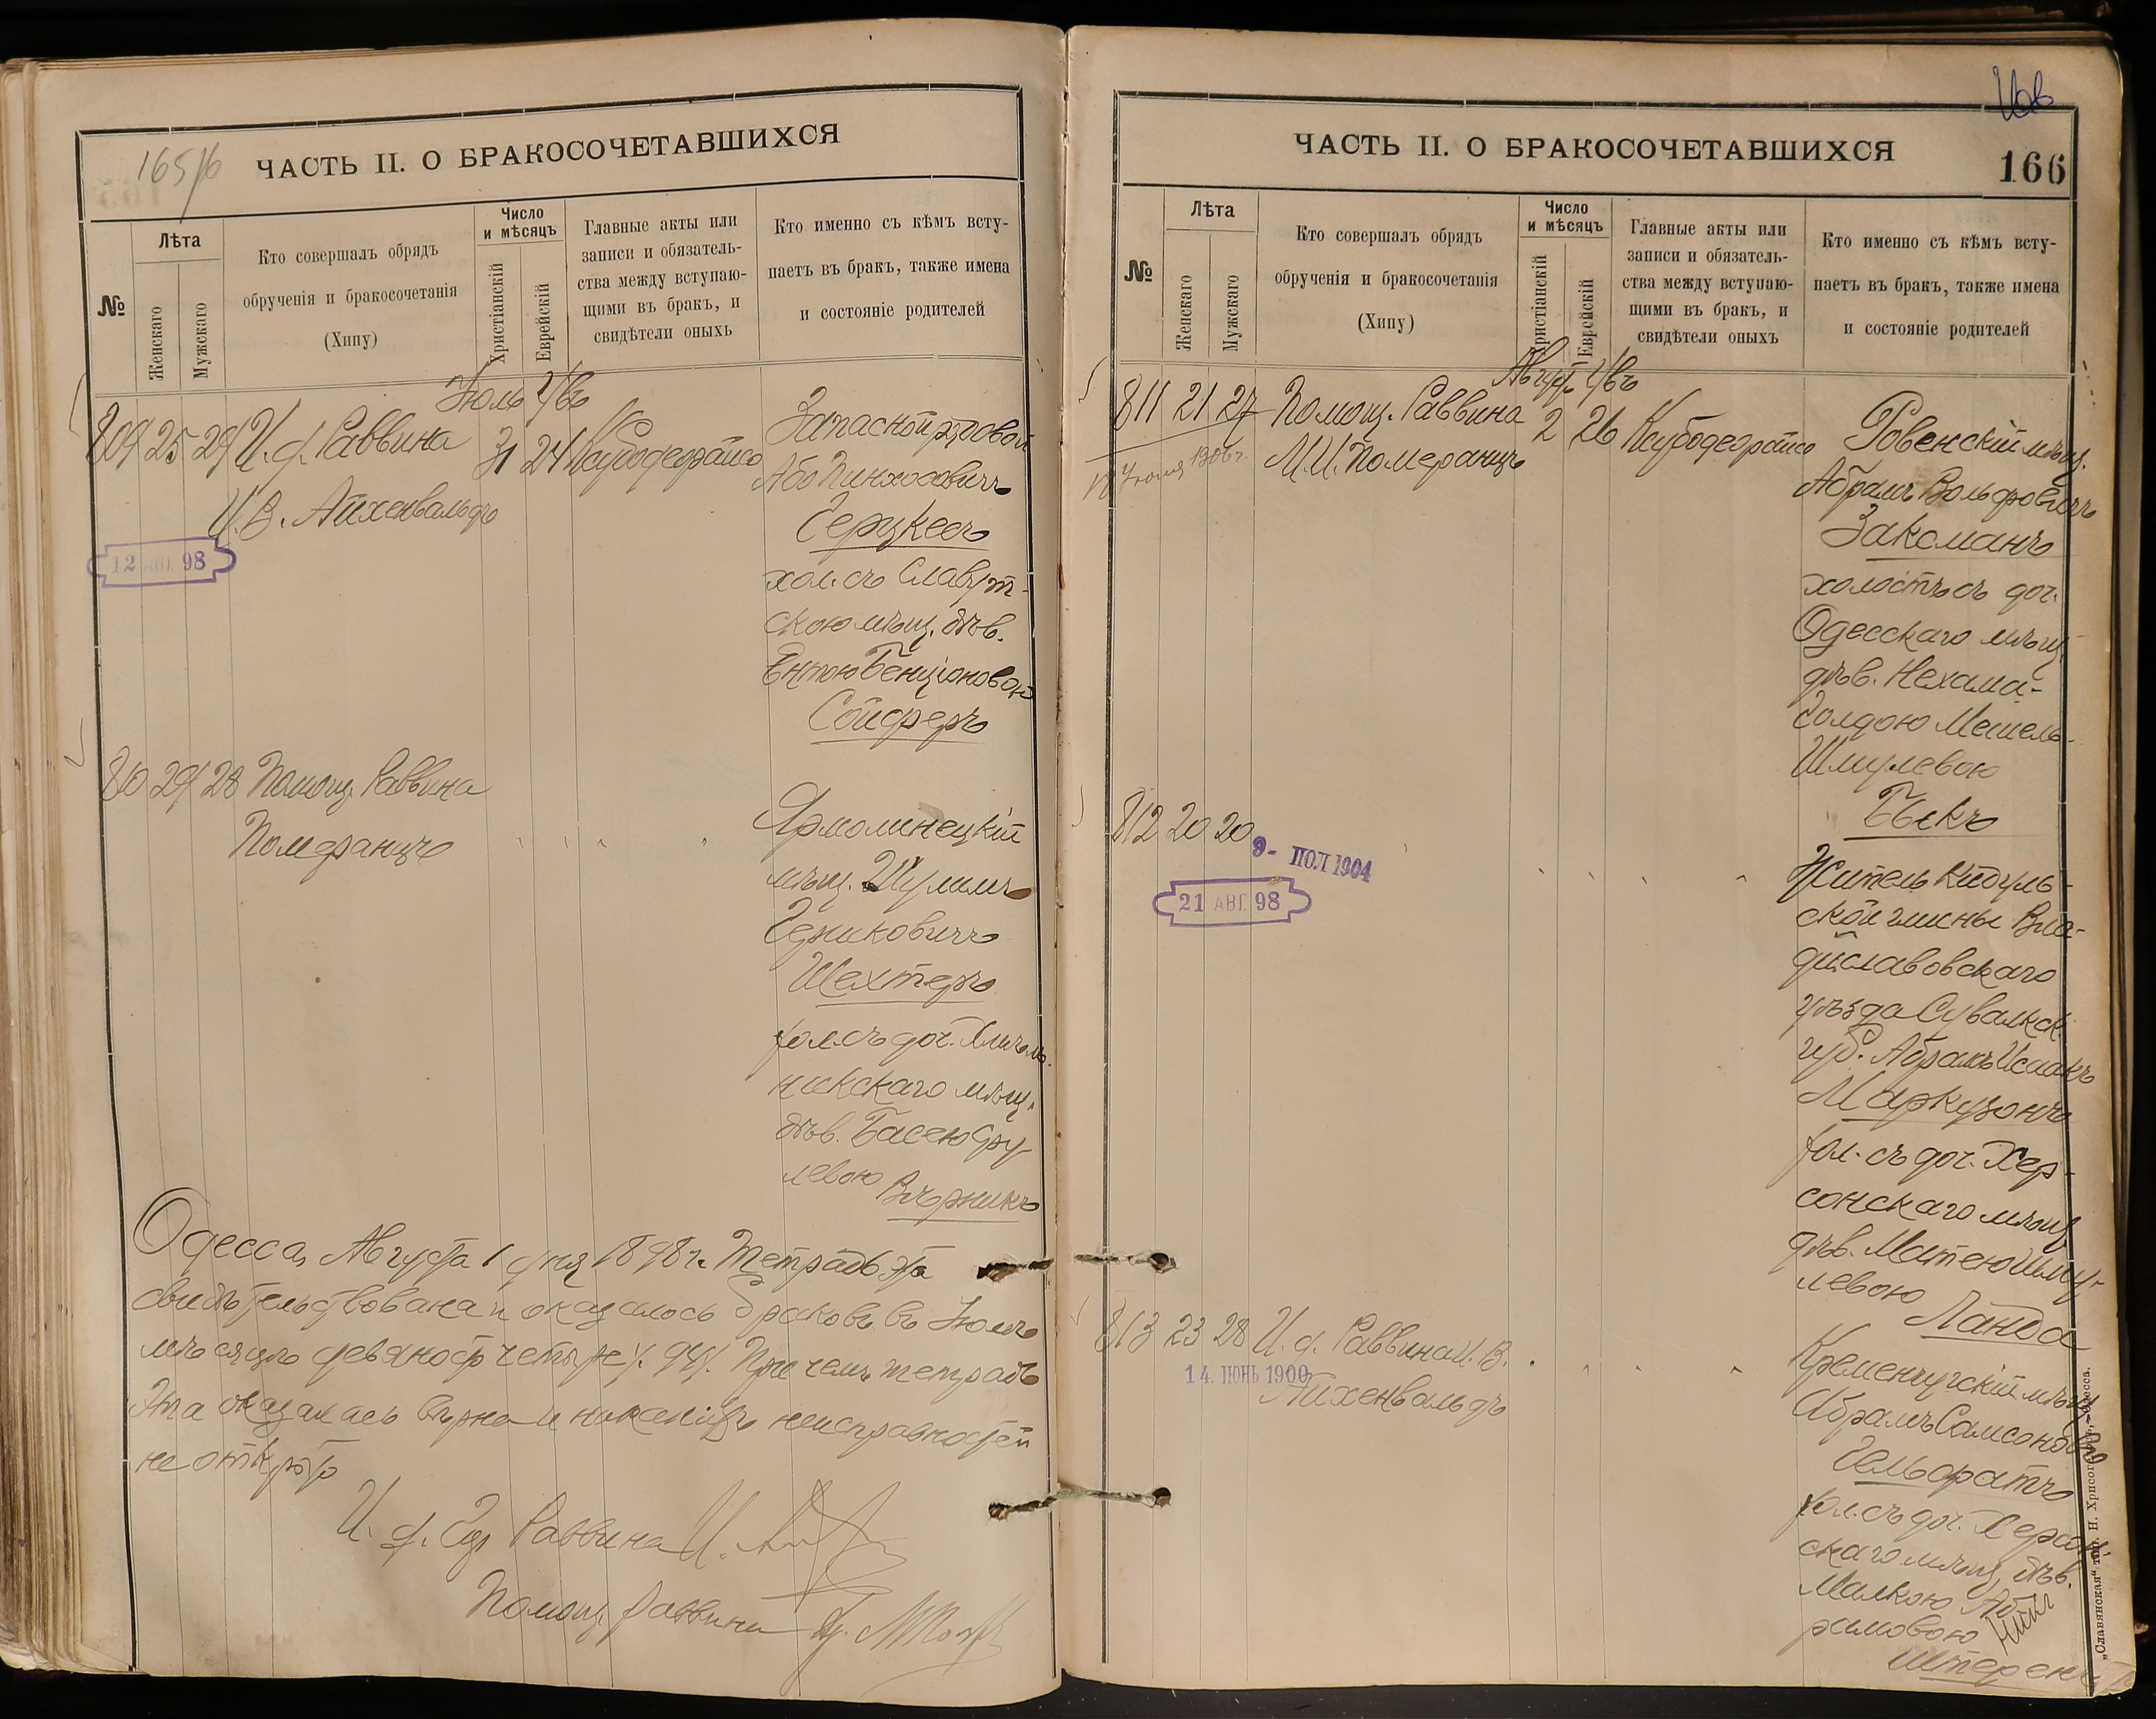 165/б
ЧАСТЬ II. О БРАКОСОЧЕТАВШИХСЯ
№
Лѣта
Женскаго
Мужскаго
Кто совершалъ обрядъ
обрученія и бракосочетанія
(Хипу)
Число
и мѣсяцъ
Христіанскій
Еврейскій
Главные акты или
записи и обязатель-
ства между вступаю-
щими въ бракъ, и
свидѣтели оныхъ
Кто именно съ кѣмъ всту-
паетъ въ бракъ, также имена
и состояніе родителей
Іюль
809 25 29 И. д. Раввина 31 24
И. В. Айхенвальдъ
12 АВГ. 98
Запасной рядовой
Або Пинхосовичъ
Герцкесъ
хол. съ Славут-
скою мѣщ. дѣв.
Ентою Бенціоновою
Сойферъ
810 29 28 Помощ. Раввина
Померанцъ
Ярмолинецкій
мѣщ. Шулимъ
Шехтеръ
хол. съ доч. Хмѣль-
никскаго мѣщ.
дѣв. Басею Сру-
левою
Вѣрникъ
Одесса, Августа 1 дня 1898 г. Тетрадь эта
свидѣтельствована и оказалось браковъ въ Іюлѣ
мѣсяцѣ девяносто четыре /. 94/. При чемъ тетрадь
эта оказалась вѣрна и никакихъ неисправностей
не открыто
И. д. Гор Раввина И.
Помощ. раввина
ЧАСТЬ II. О БРАКОСОЧЕТАВШИХСЯ
166
№
Лѣта
Женскаго
Мужскаго
Кто совершалъ обрядъ
обрученія и бракосочетанія
(Хипу)
Число
и мѣсяцъ
Христіанскій
Еврейскій
Главные акты или
записи и обязатель-
ства между вступаю-
щими въ бракъ, и
свидѣтели оныхъ
Кто именно съ кѣмъ всту-
паетъ въ бракъ, также имена
и состояніе родителей
Августъ
811 21 27 Помощ. Раввина 2 26
М. И. Померанцъ
1906 г.
Ровенскій мѣщ.
Абрамъ Вольфовичъ
Заксманъ
холостъ съ доч.
Одесскаго мѣщ
дѣв. Нехама-
Голдою Мешель-
Шмулевою
Бѣкъ
812 20 20
9- ІЮЛ 1904
21 АВГ. 98
Житель Кидуль-
ской гмины Вла-
диславовскаго
уѣзда Сувалкск.
губ. Абрамъ Исаакъ
Маркузонъ
хол. съ доч. Хер-
сонскаго мѣщ
дѣв. Матею Шму-
левою
Ланда
813 23 28 И. д. Раввина И. В.
Айхенвальдъ
14. ІЮНЬ 1900
Кременчугскій мѣщ
Абрамъ Самсоновъ
Гельфатъ
хол. съ доч. Херсон-
скаго мѣщ, дѣв.
Малкою Аб-
рамовою
Штеренъ
„Славянская“ тип. Н. Хрисогелосъ, Одесса.